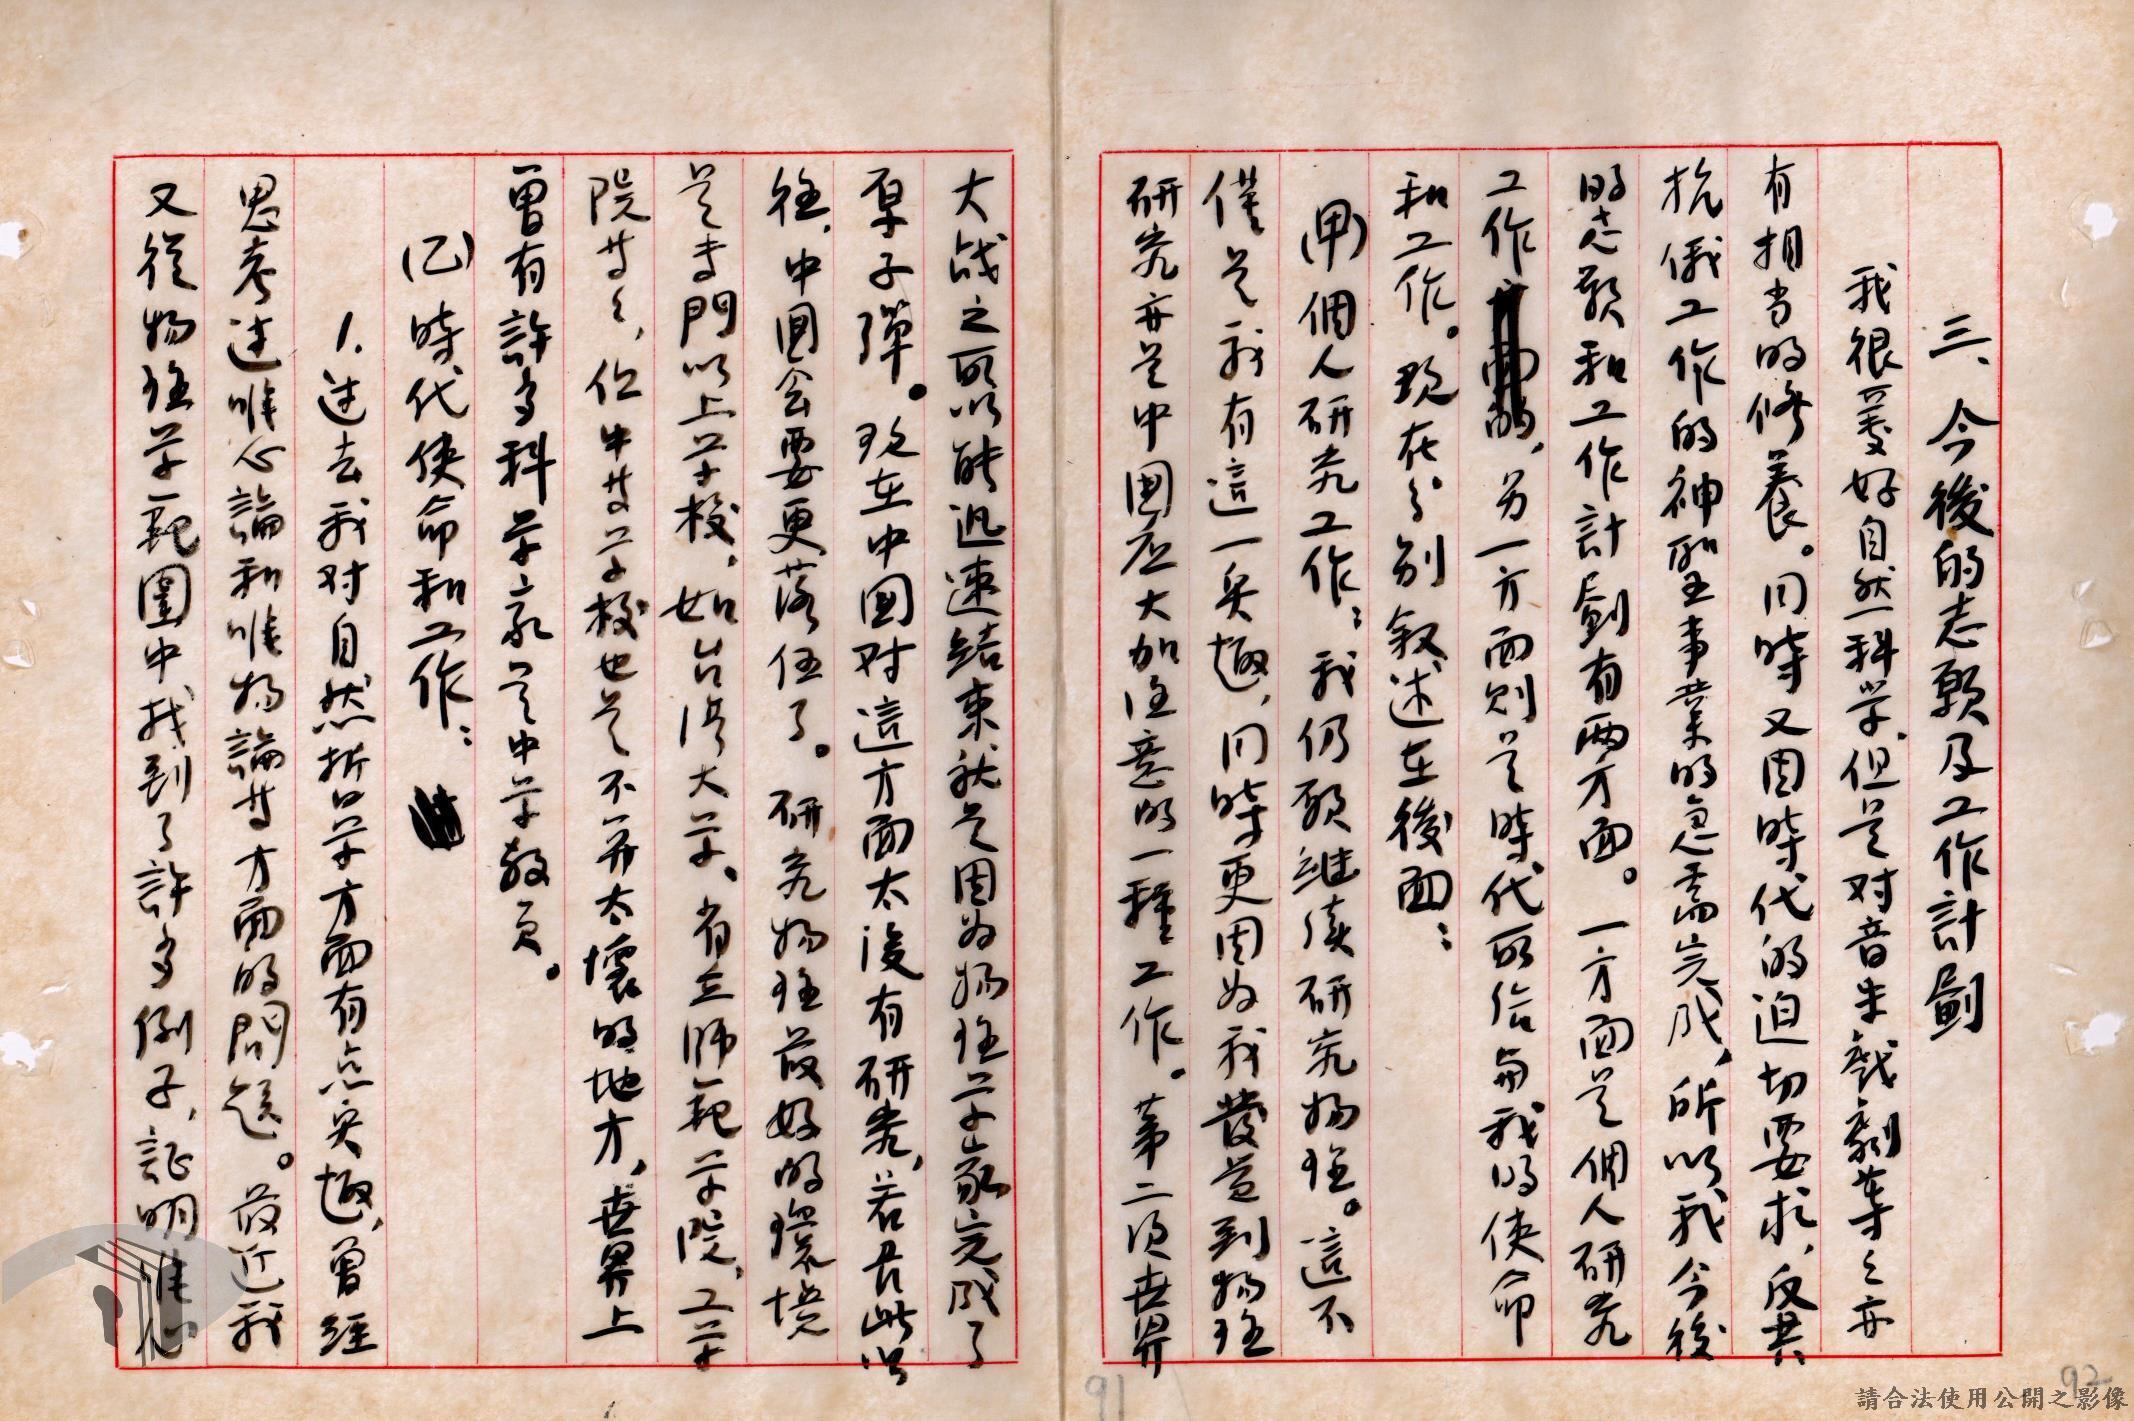 三、今後的志願及工作計劃
我很愛好自然科學,但是对音乐戲劇等々亦
有相当的修養。同時又因時代的迫切要求,反共
抗俄工作的神聖事業的急需完成,所以我今後
的志願和工作計劃有兩方面。一方面是個人研究
工作,另一方面則是時代所給與我的使命
和工作。現在分別叙述在後面:
(甲)個人研究工作:我仍願継续研究物理。這不
僅是我有這一兴趣,同時更因为我發覺到物理
研究亦是中國应大加注意的一種工作。第二次世界
大战之所以能迅速結束就是因为物理学家完成了
原子彈。現在中國对這方面太没有研究,若长此以
往,中國会要更落伍了。研究物理最好的環境
是専門以上学校,如台湾大学、省立师範学院、工学
院等々,但中等学校也是不算太壞的地方,世界上
曾有許多科学家是中学教员。
(乙)時代使命和工作:
1.过去我对自然哲学方面有点兴趣,曾經
思考过唯心論和唯物論等方面的問題。最近我
又從物理学範圍中找到了許多例子,証明唯心
91
92
請合法使用公開之影像